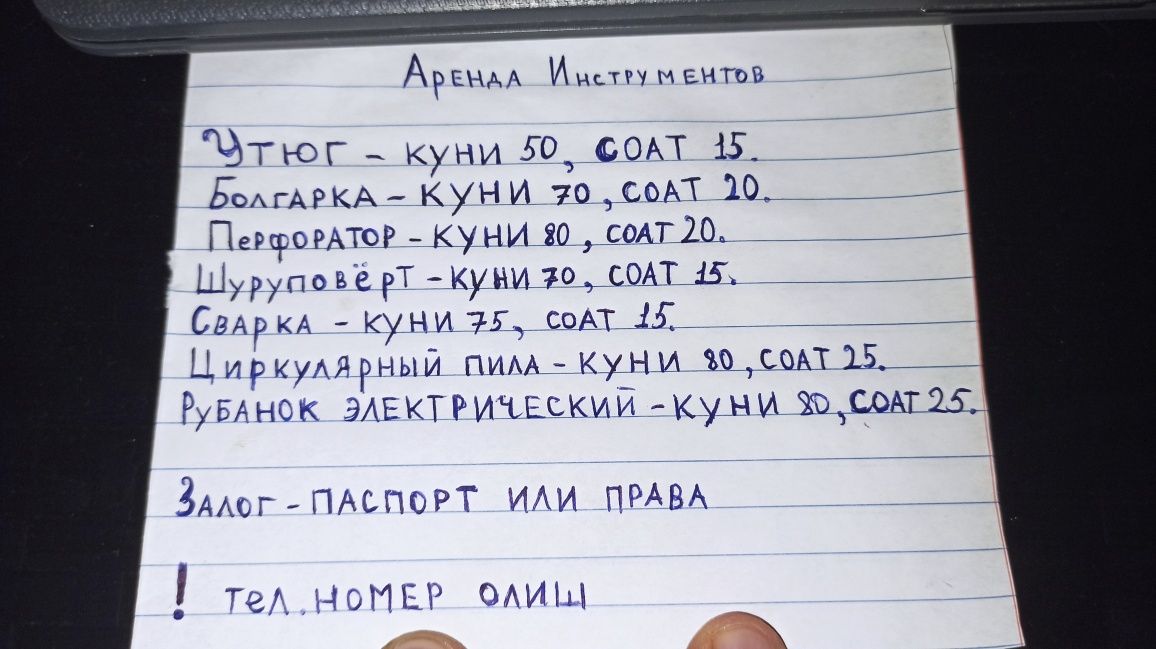 Аренда Инструментов
Утюг - куни 50, соат 15.
Болгарка - куни 70, соат 20.
Перфоратор - куни 80, соат 20.
Шуруповёрт - куни 70, соат 15.
Сварка - куни 75, соат 15.
Циркулярный пила - куни 80, соат 25.
Рубанок электрический - куни 80, соат 25.
Залог - паспорт или права
! тел. номер олиш